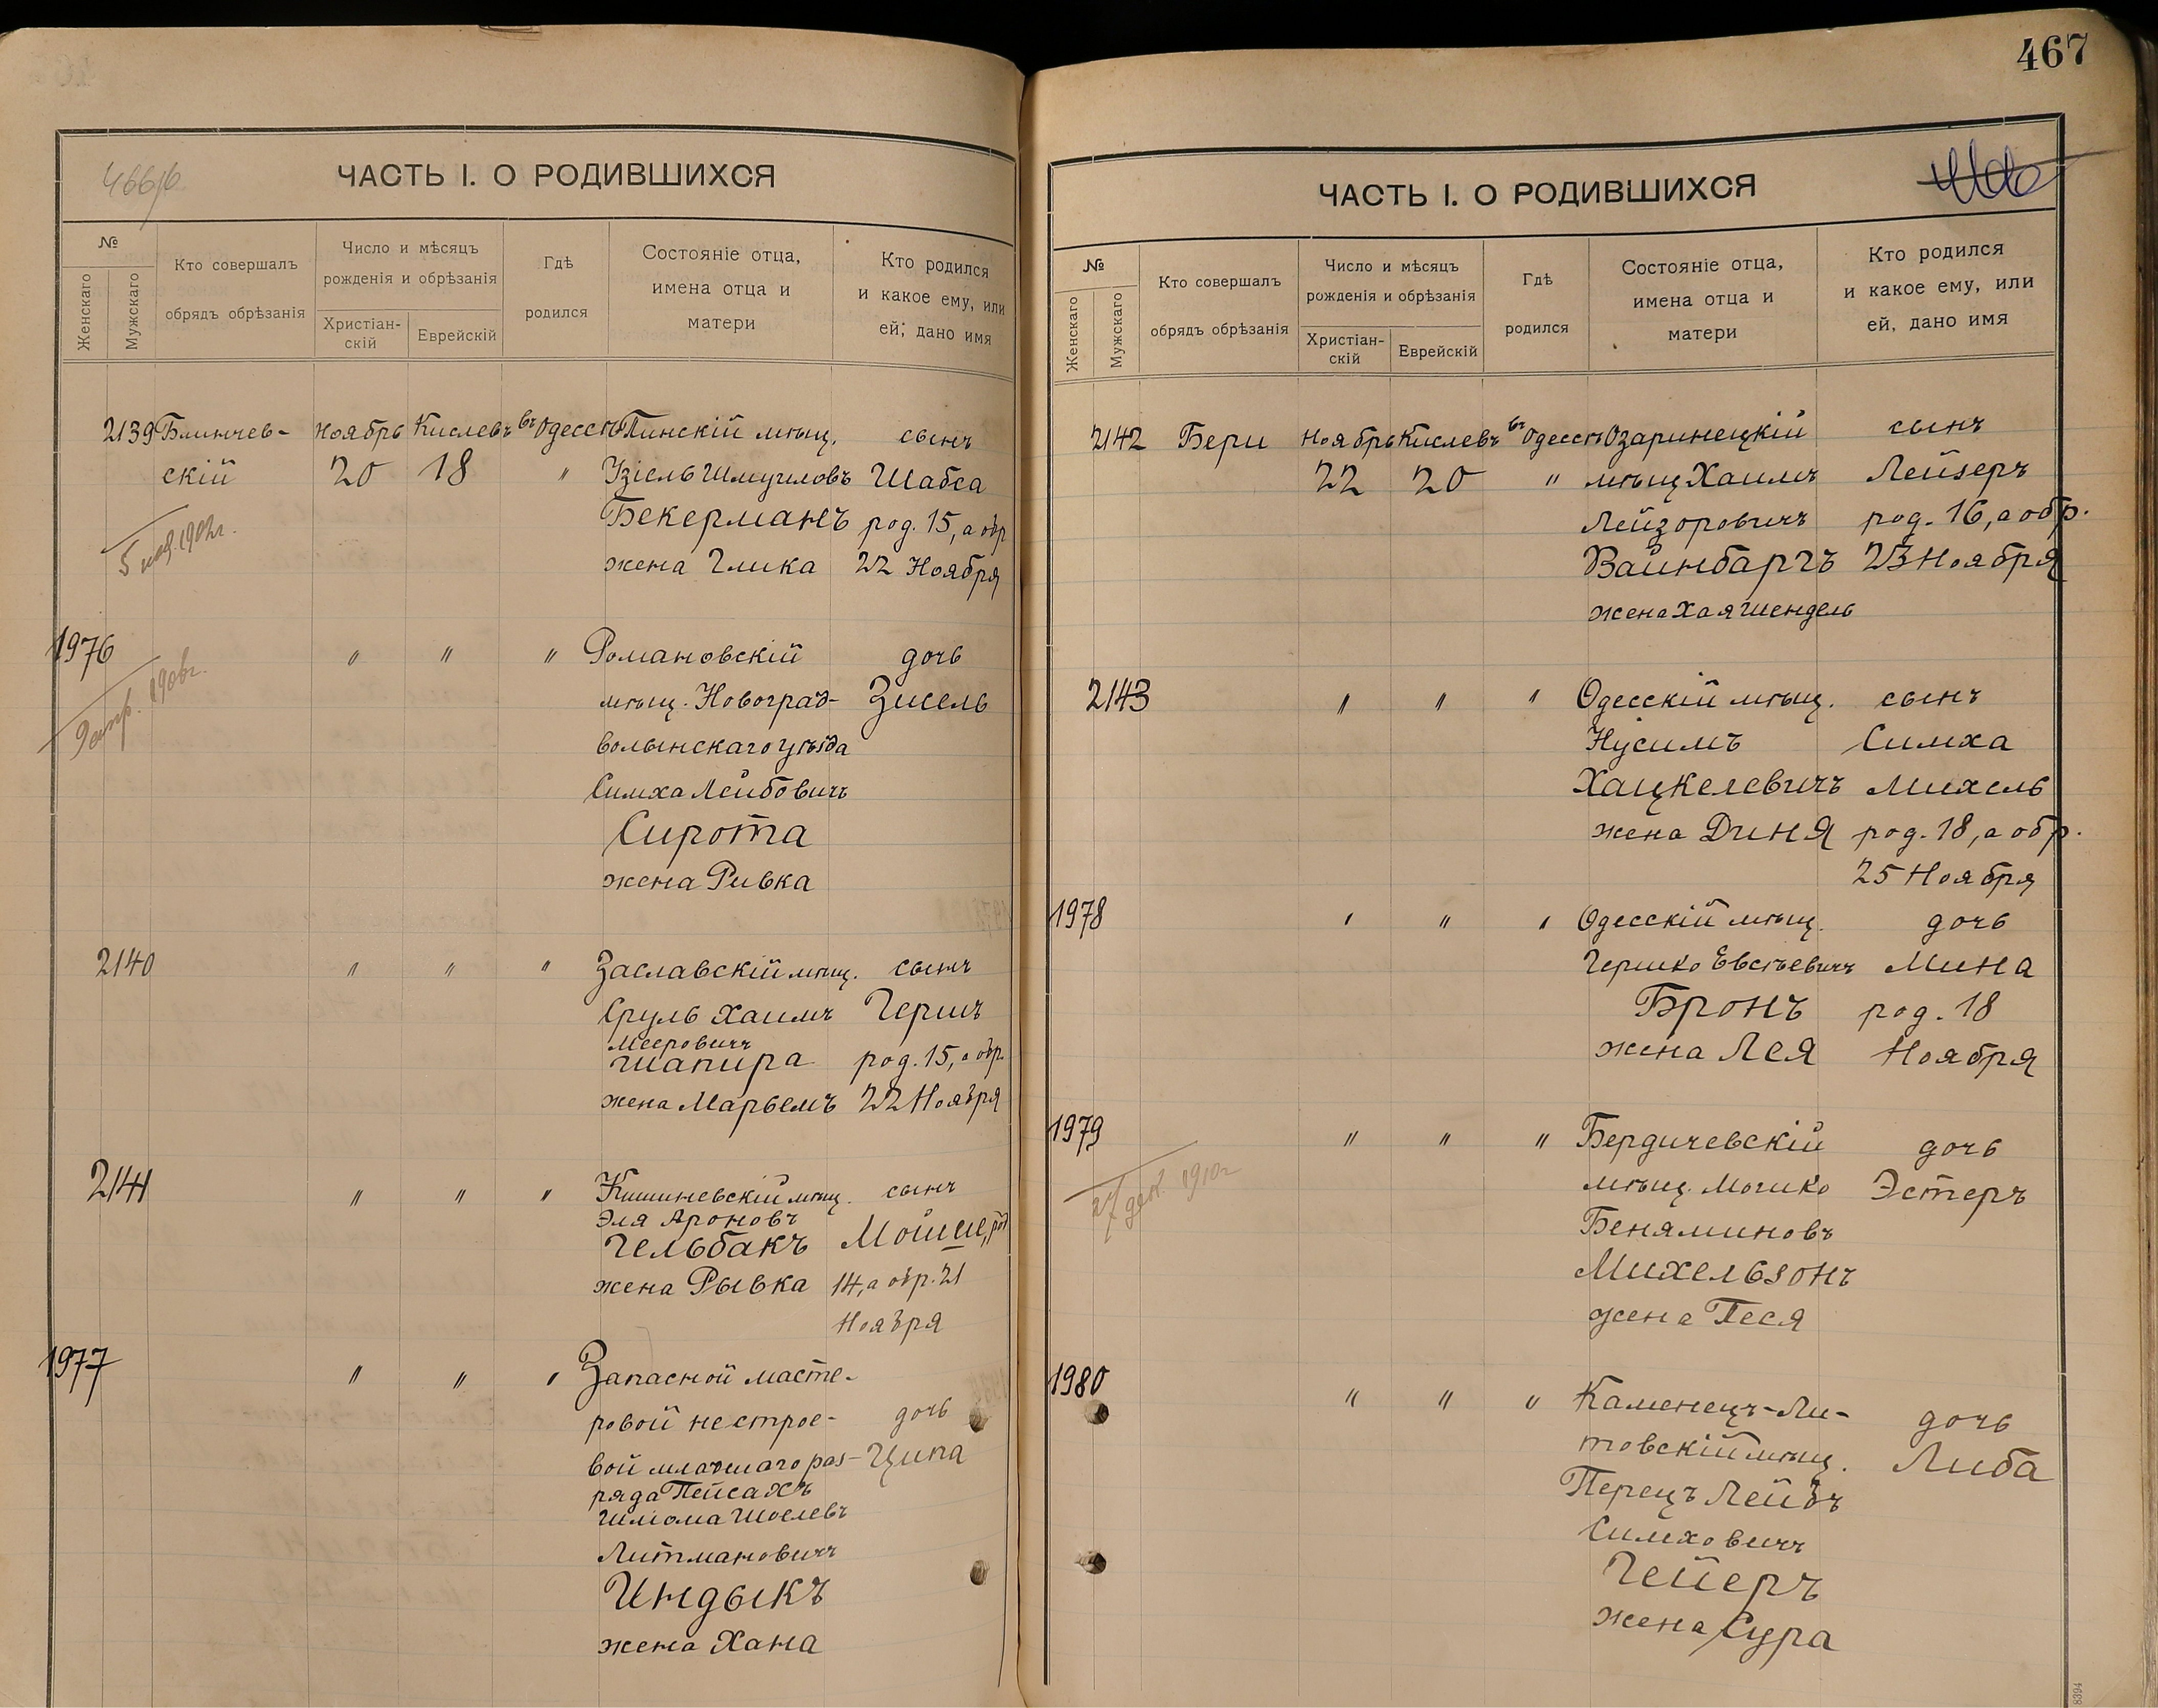 467
466/б
ЧАСТЬ I. О РОДИВШИХСЯ
№
Женскаго
Мужскаго
Кто совершалъ
обрядъ обрѣзанія
Число и мѣсяцъ
рожденія и обрѣзанія
Христіан-
скій
Еврейскій
Гдѣ
родился
Состояніе отца,
имена отца и
матери
Кто родился
и какое ему, или
ей, дано имя
2139 Блинчев- Ноябрь Кислевъ въ Одессѣ Пинскій мѣщ. сынъ
скій 20 18 " Узіель Шмуиловъ Шабса
Бекерманъ род. 15, а обр
жена Глика 22 Ноября
1902г.
1976 " " " Романовскій дочь
мѣщ. Новоград- Зисель
волынскаго уѣзда
Симха Лейбовичъ
Сирота
жена Ривка
1906г.
2140 " " " Заславскій мѣщ. сынъ
Сруль Хаимъ Гершъ
Мееровичъ
Шапира род. 15, а обр.
жена Марьемъ 22 Ноября
2141 " " " Кишиневскій мѣщ. сынъ
Эля Ароновъ
Гельбакъ Мойше, род
жена Рывка 14, а обр. 21
Ноября
1977 " " " Запасной масте-
ровой нестрое- дочь
вой младшаго раз- Ципа
ряда Пейсахъ
Шлиома Шоелевъ
Литмановичъ
Индыкъ
жена Хана
ЧАСТЬ I. О РОДИВШИХСЯ
№
Женскаго
Мужскаго
Кто совершалъ
обрядъ обрѣзанія
Число и мѣсяцъ
рожденія и обрѣзанія
Христіан-
скій
Еврейскій
Гдѣ
родился
Состояніе отца,
имена отца и
матери
Кто родился
и какое ему, или
ей, дано имя
2142 Бери Ноябрь Кислевъ въ Одессѣ Озаринецкій сынъ
22 20 " мѣщ Хаимъ Лейзеръ
Лейзоровичъ род. 16, а обр.
Вайнбаргъ 23 Ноября
жена Хая Шендель
2143 " " " Одесскій мѣщ. сынъ
Нусимъ Симха
Хацкелевичъ Михель
жена Диня род. 18, а обр.
25 Ноября
1978 " " " Одесскій мѣщ. дочь
Гершко Евсѣевичъ Мина
Бронъ род. 18
жена Лея Ноября
1979 " " " Бердичевскій дочь
мѣщ. Мошко Эстеръ
Беняминовъ
Михельзонъ
жена Песя
27 дек. 1910г
1980 " " " Каменецъ-Ли- дочь
товскій мѣщ. Либа
Перецъ Лейбъ
Симховичъ
Гейеръ
жена Сура
8394